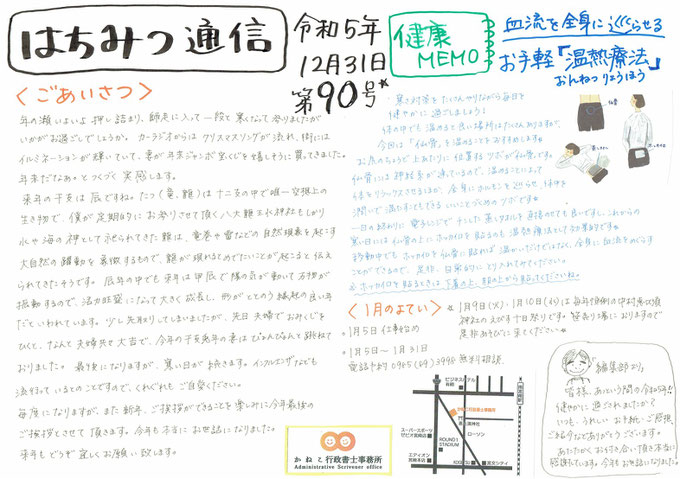 はちみつ通信
令和5年
12月31日
第90号
健康
MEMO
血流を全身に巡らせる
お手軽「温熱療法」
おんねつりょうほう
〈ごあいさつ〉
年の瀬いよいよ押し詰まり、師走に入って一段と寒くなって参りましたが
いかがお過ごしでしょうか。カーラジオからは クリスマスソングが流れ、街には
イルミネーションが輝いていて、妻が年末ジャンボ宝くじを嬉しそうに買ってきました。
年末だなぁ。とつくづく実感します。
来年の干支は辰ですね。たつ(竜、龍)は十二支の中で唯一空想上の
生き物で、僕が定期的にお参りさせて頂く八大龍王水神社もしかり
水や海の神として祀られてきた龍は、竜巻や雷などの自然現象を起こす
大自然の躍動を象徴するもので、龍が現れるとめでたいことが起こると伝え
られてきたそうです。辰年の中でも来年は甲辰で陽の気が動いて万物が
振動するので、活力旺盛になって大きく成長し、形がととのう縁起の良い年
だといわれています。少し先取りしてしまいましたが、先日夫婦でおみくじを
ひくと、なんと夫婦共で大吉で、今年の干支兎年の妻はぴょんぴょんと跳ねて
おりました。最後になりますが、寒い日が続きます。インフルエンザなども
流行っているとのことですので、くれぐれもご自愛ください。
毎度になりますが、また新年、ご挨拶ができることを楽しみに今年最後の
ご挨拶とさせて頂きます。今年も本当にお世話になりました。
来年もどうぞ宜しくお願い致します。
寒さ対策をたくさんやりながら毎日を
健やかに過ごしましょう!
体の中でも温めると良い場所はたくさんありますが、
今回は「仙骨」を温めることをおすすめします。
お尻のちょうど上あたりに位置するツボが仙骨です。
仙骨には神経が通っているので、温めることによって
体をリラックスさせるほか、全身に
一日の終わりに電子レンジでチンした蒸しタオルを直接のせても良いですし、これからの
寒い日には仙骨の上にホッカイロを貼るのも温熱療法として効果的です
移動中でもホッカイロを仙骨に貼れば温かいだけではなく、全身に血流をめぐらす
ことができるので、是非、日常的にとり入れてみてください。
※ホッカイロを貼るときは、下着の上、服の上から貼ってくださいね。
〈1月のよてい〉
。1月5日 仕事始め
。1月5日~1月31日
電話予約 無料相談
。1月9日(火)、1月10日(水)は毎年恒例の中村恵比須
神社のえびす十日祭りです。笹売り場におりますので
是非あそびに来てください
編集部より
皆様、あっという間の令和5年!!
健やかに過ごされましたか?
いつも、うれしいお手紙・ご感想、
ご紹介などありがとうございます。
あたたかくお付き合い頂き本当に
感謝しています。今年もお世話になりました。
かねこ行政書士事務所
Administrative Scrivener office
ビジネスホテル
かねこ行政書士事務所
ローソン
スーパースポーツ
ゼビオ宮崎店
ROUND1
STADIUM
エディオン
宮崎本店
宮交シティ